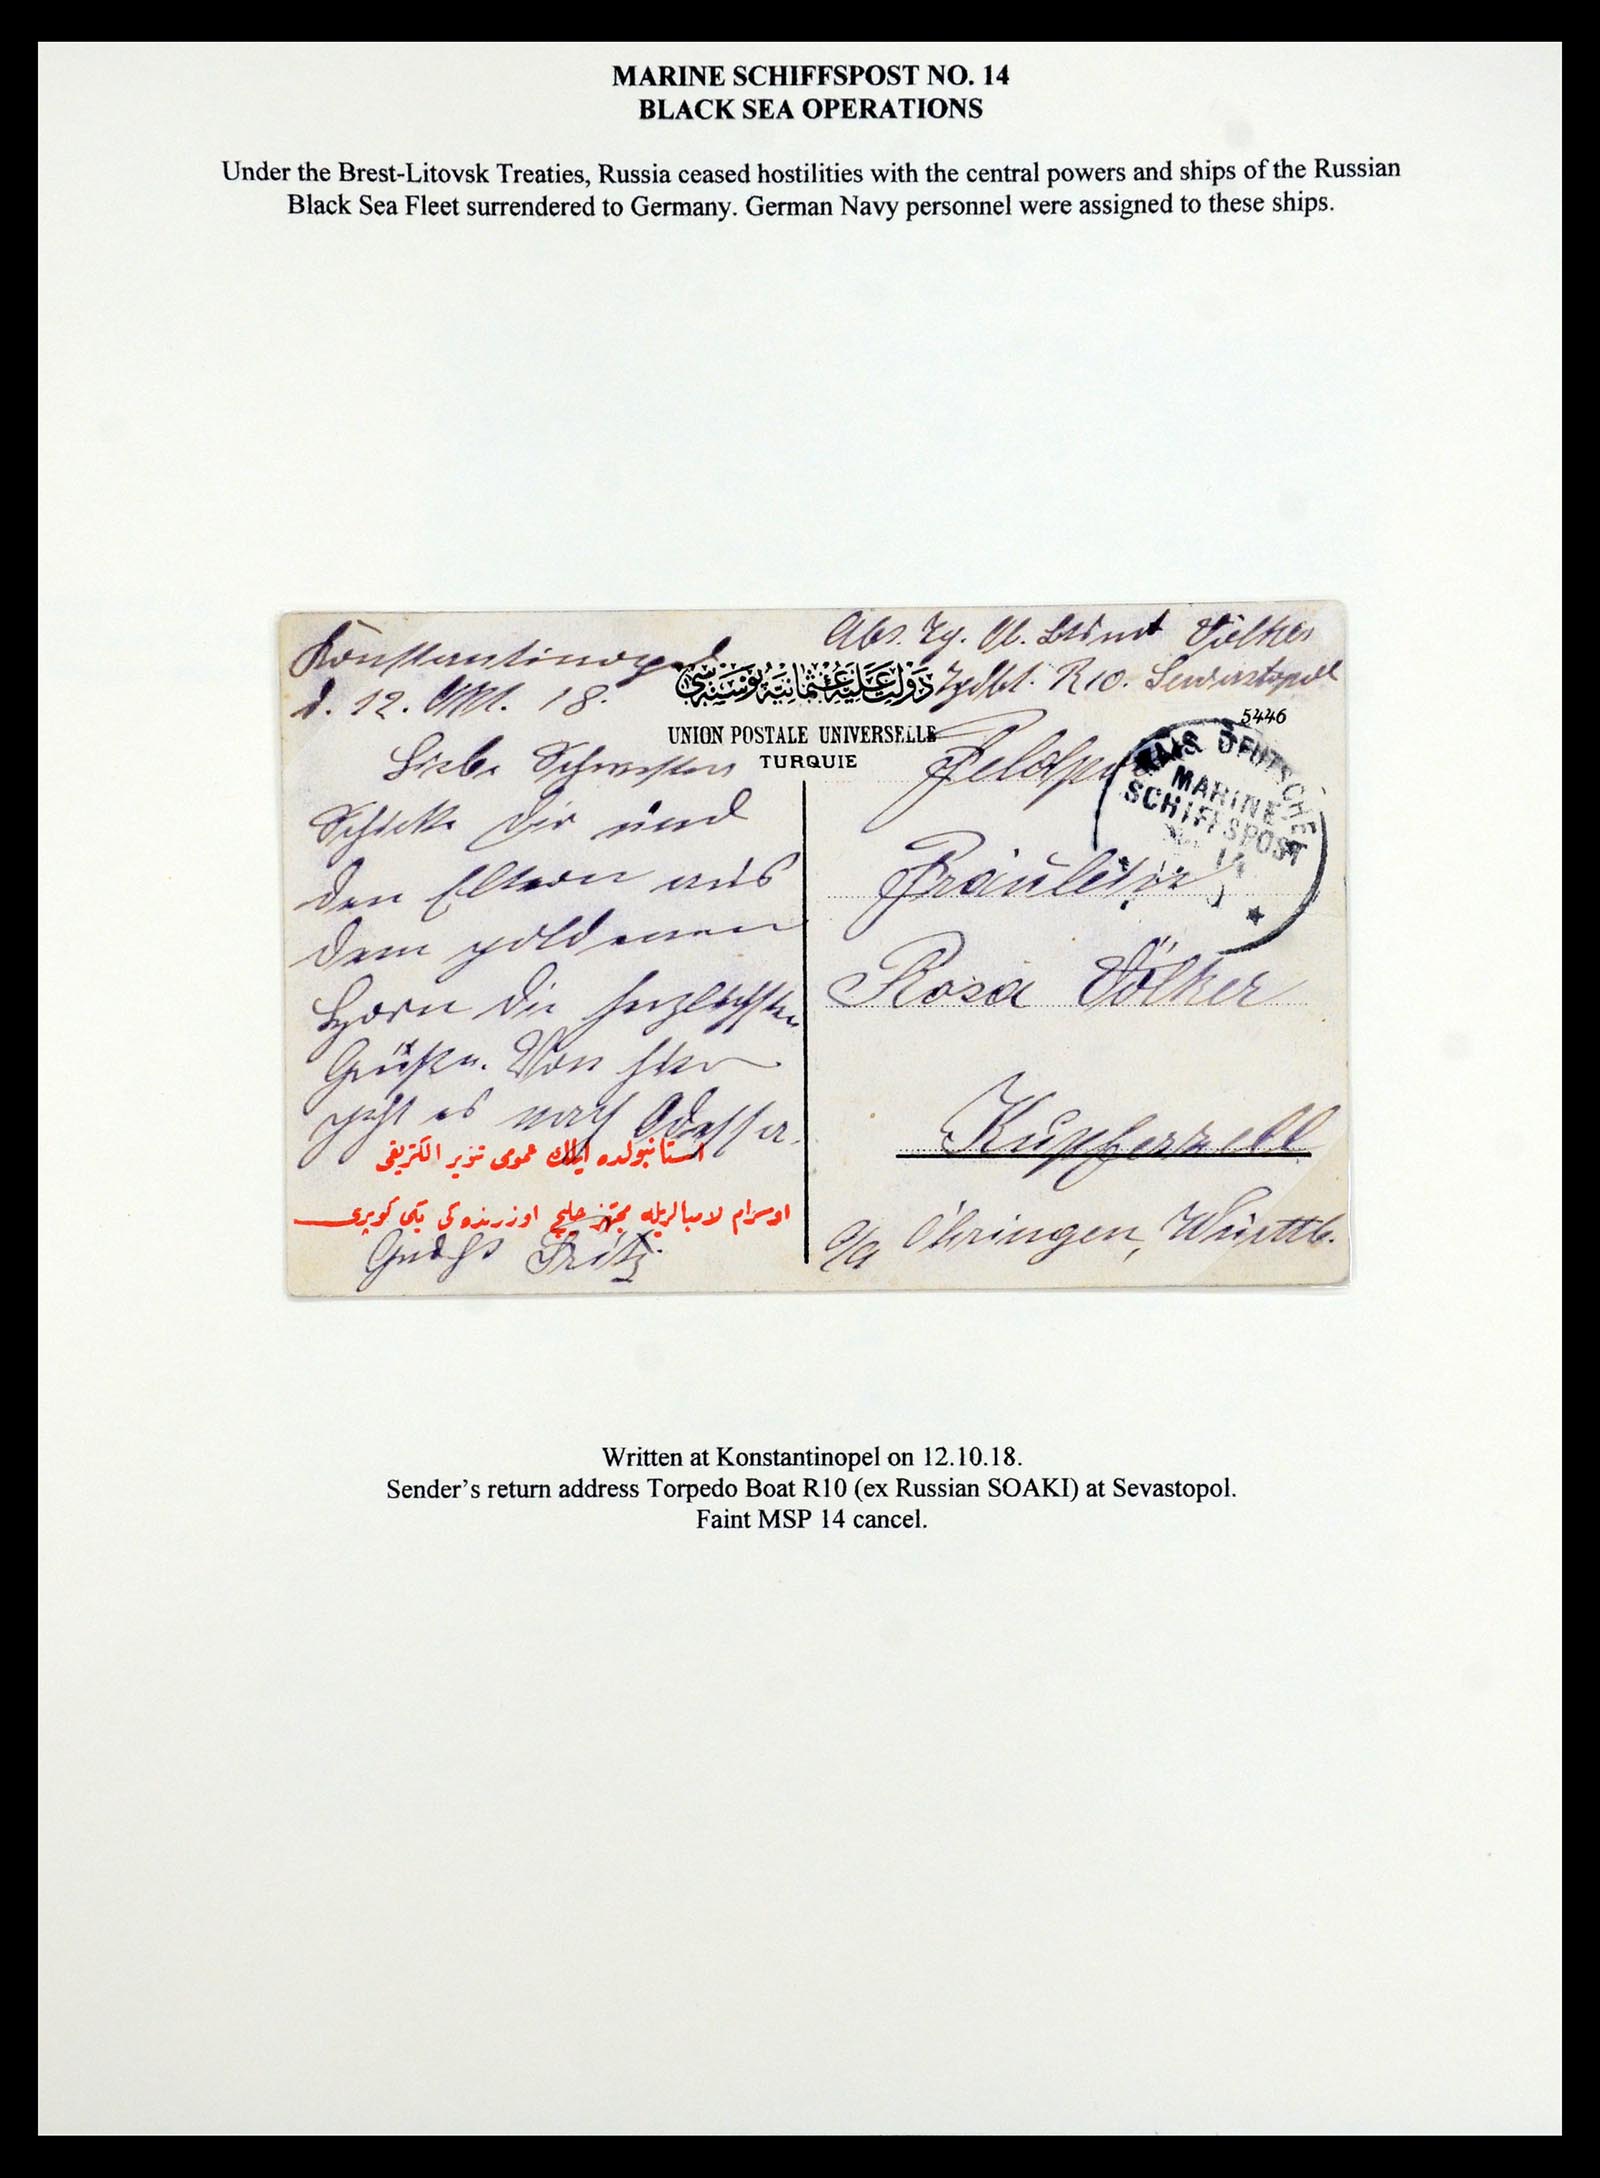 MARINE SCHIFFSPOST NO. 14
BLACK SEA OPERATIONS
Under the Brest-Litovsk Treaties, Russia ceased hostilities with the central powers and ships of the Russian
Black Sea Fleet surrendered to Germany. German Navy personnel were assigned to these ships.
Konstantinopel
d. 12. Okt. 18.
Liebe Schwester
Schicke dir und
den Eltern aus
dem goldenen
Horn die herzlichsten
Grüße. Von hier
geht es nach Odessa.
استانبولده ايلك عمومى تنوير الكتريقى
اوسرام لامبالريله مجهز خليج اوزرنده كى يكى كوپرى
Fritz.
دولت عليه عثمانيه پوسته سى
UNION POSTALE UNIVERSELLE
TURQUIE
Abs. Völker
R10. Sewastopol
5446
Feldpost
KAIS DEUTSCHE
MARINE
SCHIFFSPOST
14
Fräulein
Rosa Völker
Kupferzell
O/A Öhringen, Württb.
Written at Konstantinopel on 12.10.18.
Sender's return address Torpedo Boat R10 (ex Russian SOAKI) at Sevastopol.
Faint MSP 14 cancel.